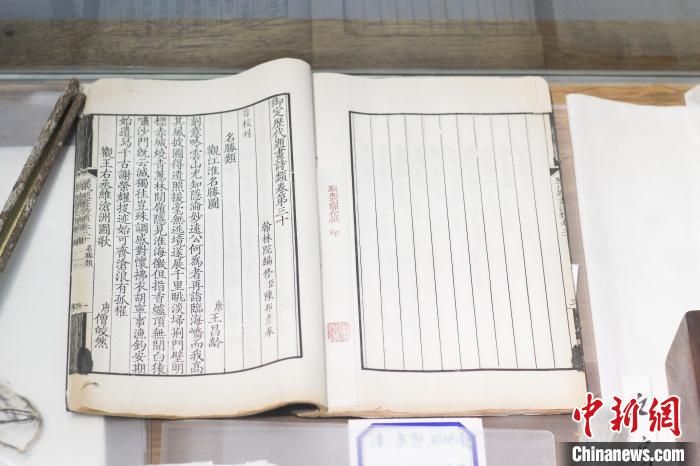 御定歷代題畫詩類卷第三十
翰林院編修臣陳邦彥奉
旨校刊
名勝類
觀江淮名勝圖 唐 王昌齡
刻意吟雲山尤知隱淪妙遠公何為者再詣臨海嶠而我高
其風披圖得遺照援毫無逃境遂展千里眺淡埽荊門壁明
標赤城燒青葱林間嶺隱見淮海徼但指香爐頂無聞白猿
嘯沙門既云滅獨往豈殊調感對懷拂衣胡寧事漁釣安期
始遺舄千古謝榮耀投迹始可齊滄浪有孤櫂
觀王右丞維滄洲圖歌 唐 僧皎然
名勝類
印
中新网
Chinanews.com